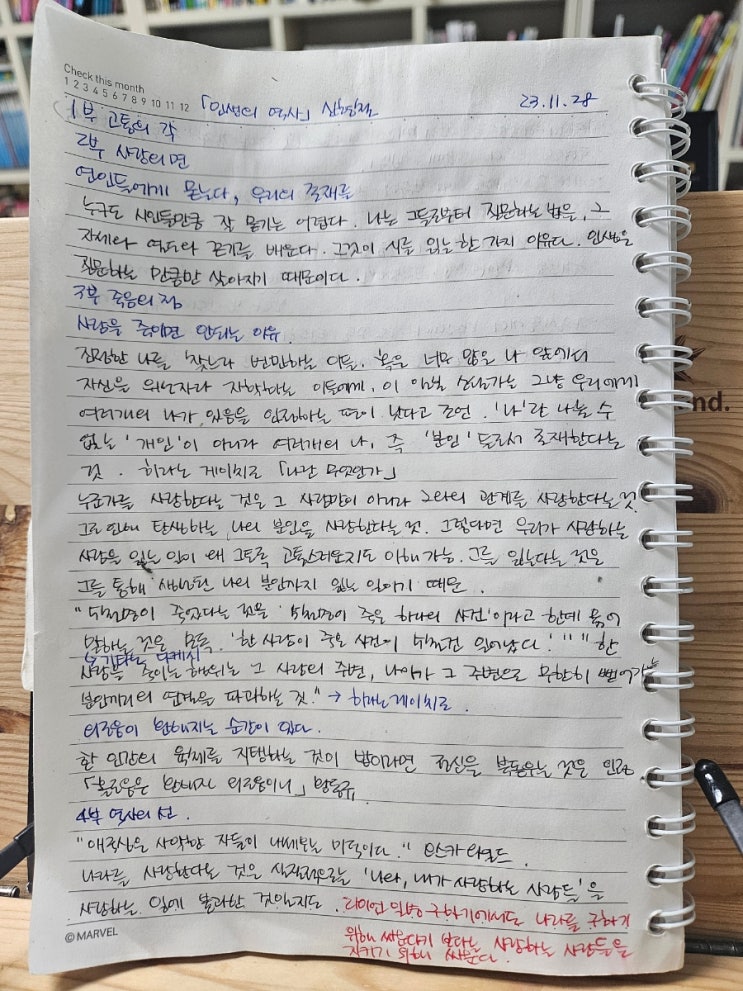 Check this month
1 2 3 4 5 6 7 8 9 10 11 12
「인생의 역사」 신형철 23.11.28
1부 고통의 각
2부 사랑의 면
연인들에게 묻는다, 우리의 존재를
누구도 시인들만큼 잘 묻기는 어렵다. 나는 그들로부터 질문하는 법을, 그
자세와 여도와 끈기를 배운다. 그것이 시를 읽는 한 가지 이유다. 인생은
질문하는 만큼만 살아지기 때문이다.
3부 죽음의 점
사람을 죽이면 안되는 이유.
진정한 나를 찾느라 번민하는 이들, 혹은 너무 많은 나 앞에서
자신을 위선자라 자학하는 이들에게, 이 일본 소설가는 그냥 우리에게
여러개의 내가 있음을 인정하는 편이 낫다고 조언. '나'란 나눌 수
없는 '개인'이 아니라 여러개의 나, 즉 '분인'들로서 존재한다는
것. 히라노 게이치로 「나란 무엇인가」
누군가를 사랑한다는 것은 그 사람만이 아니라 그와의 관계를 사랑한다는 것.
그로 인해 탄생하는 나의 분인을 사랑한다는 것. 그렇다면 우리가 사랑하는
사람을 잃는 일이 왜 그토록 고통스러운지도 이해 가능. 그를 잃는다는 것은
그를 통해 생성된 나의 분인까지 잃는 일이기 때문.
"5천명이 죽었다는 것을 '5천명이 죽은 하나의 사건'이라고 한데 묶어
말하는 것은 모독. '한 사람이 죽은 사건이 5천건 일어났다.'" "한
기타노 다케시
사람을 죽이는 행위는 그 사람의 주변, 나아가 그 주변으로 무한히 뻗어가는
분인끼리의 연결을 파괴하는 것." → 히라노게이치로.
외로움이 환해지는 순간이 있다.
한 인간의 육체를 지탱하는 것이 밥이라면 정신을 북돋우는 것은 인정
「홀로움은 환해진 외로움이니」 황동규
4부 역사의 선.
"애국심은 사악한 자들이 내세우는 미덕이다." 오스카 와일드.
나라를 사랑한다는 것은 '나라, 내가 사랑하는 사람들'을
사랑하는 일에 불과한 것인지도. 라이언 일병 구하기에서도 나라를 구하기
위해 싸운다기 보다는 사랑하는 사람들을
지키기 위해 싸운다.
© MARVEL
nd.